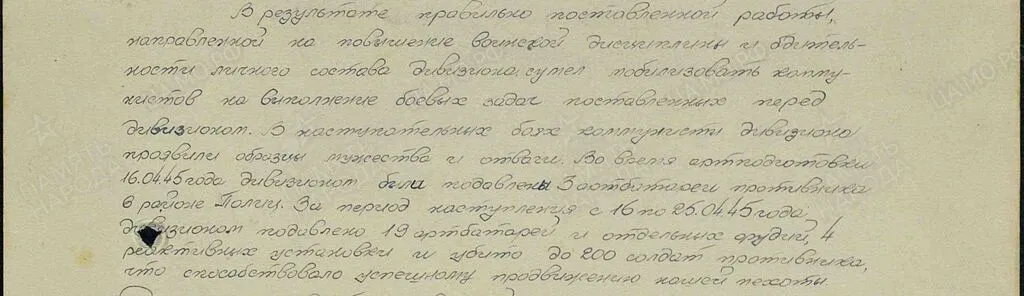 В результате правильно поставленной работы,
направленной на повышение воинской дисциплины и бдитель-
ности личного состава дивизиона сумел мобилизовать комму-
нистов на выполнение боевых задач поставленных перед
дивизионом. В наступательных боях коммунисты дивизиона
проявили образцы мужества и отваги. Во время артподготовки
16.04.45 года дивизионом были подавлены 3 артбатареи противника
в районе За период наступления с 16 по 25.04.45 года
дивизионом подавлено 19 артбатарей и отдельных орудий, 4
реактивных установки и убито до 200 солдат противника,
что способствовало успешному продвижению нашей пехоты.